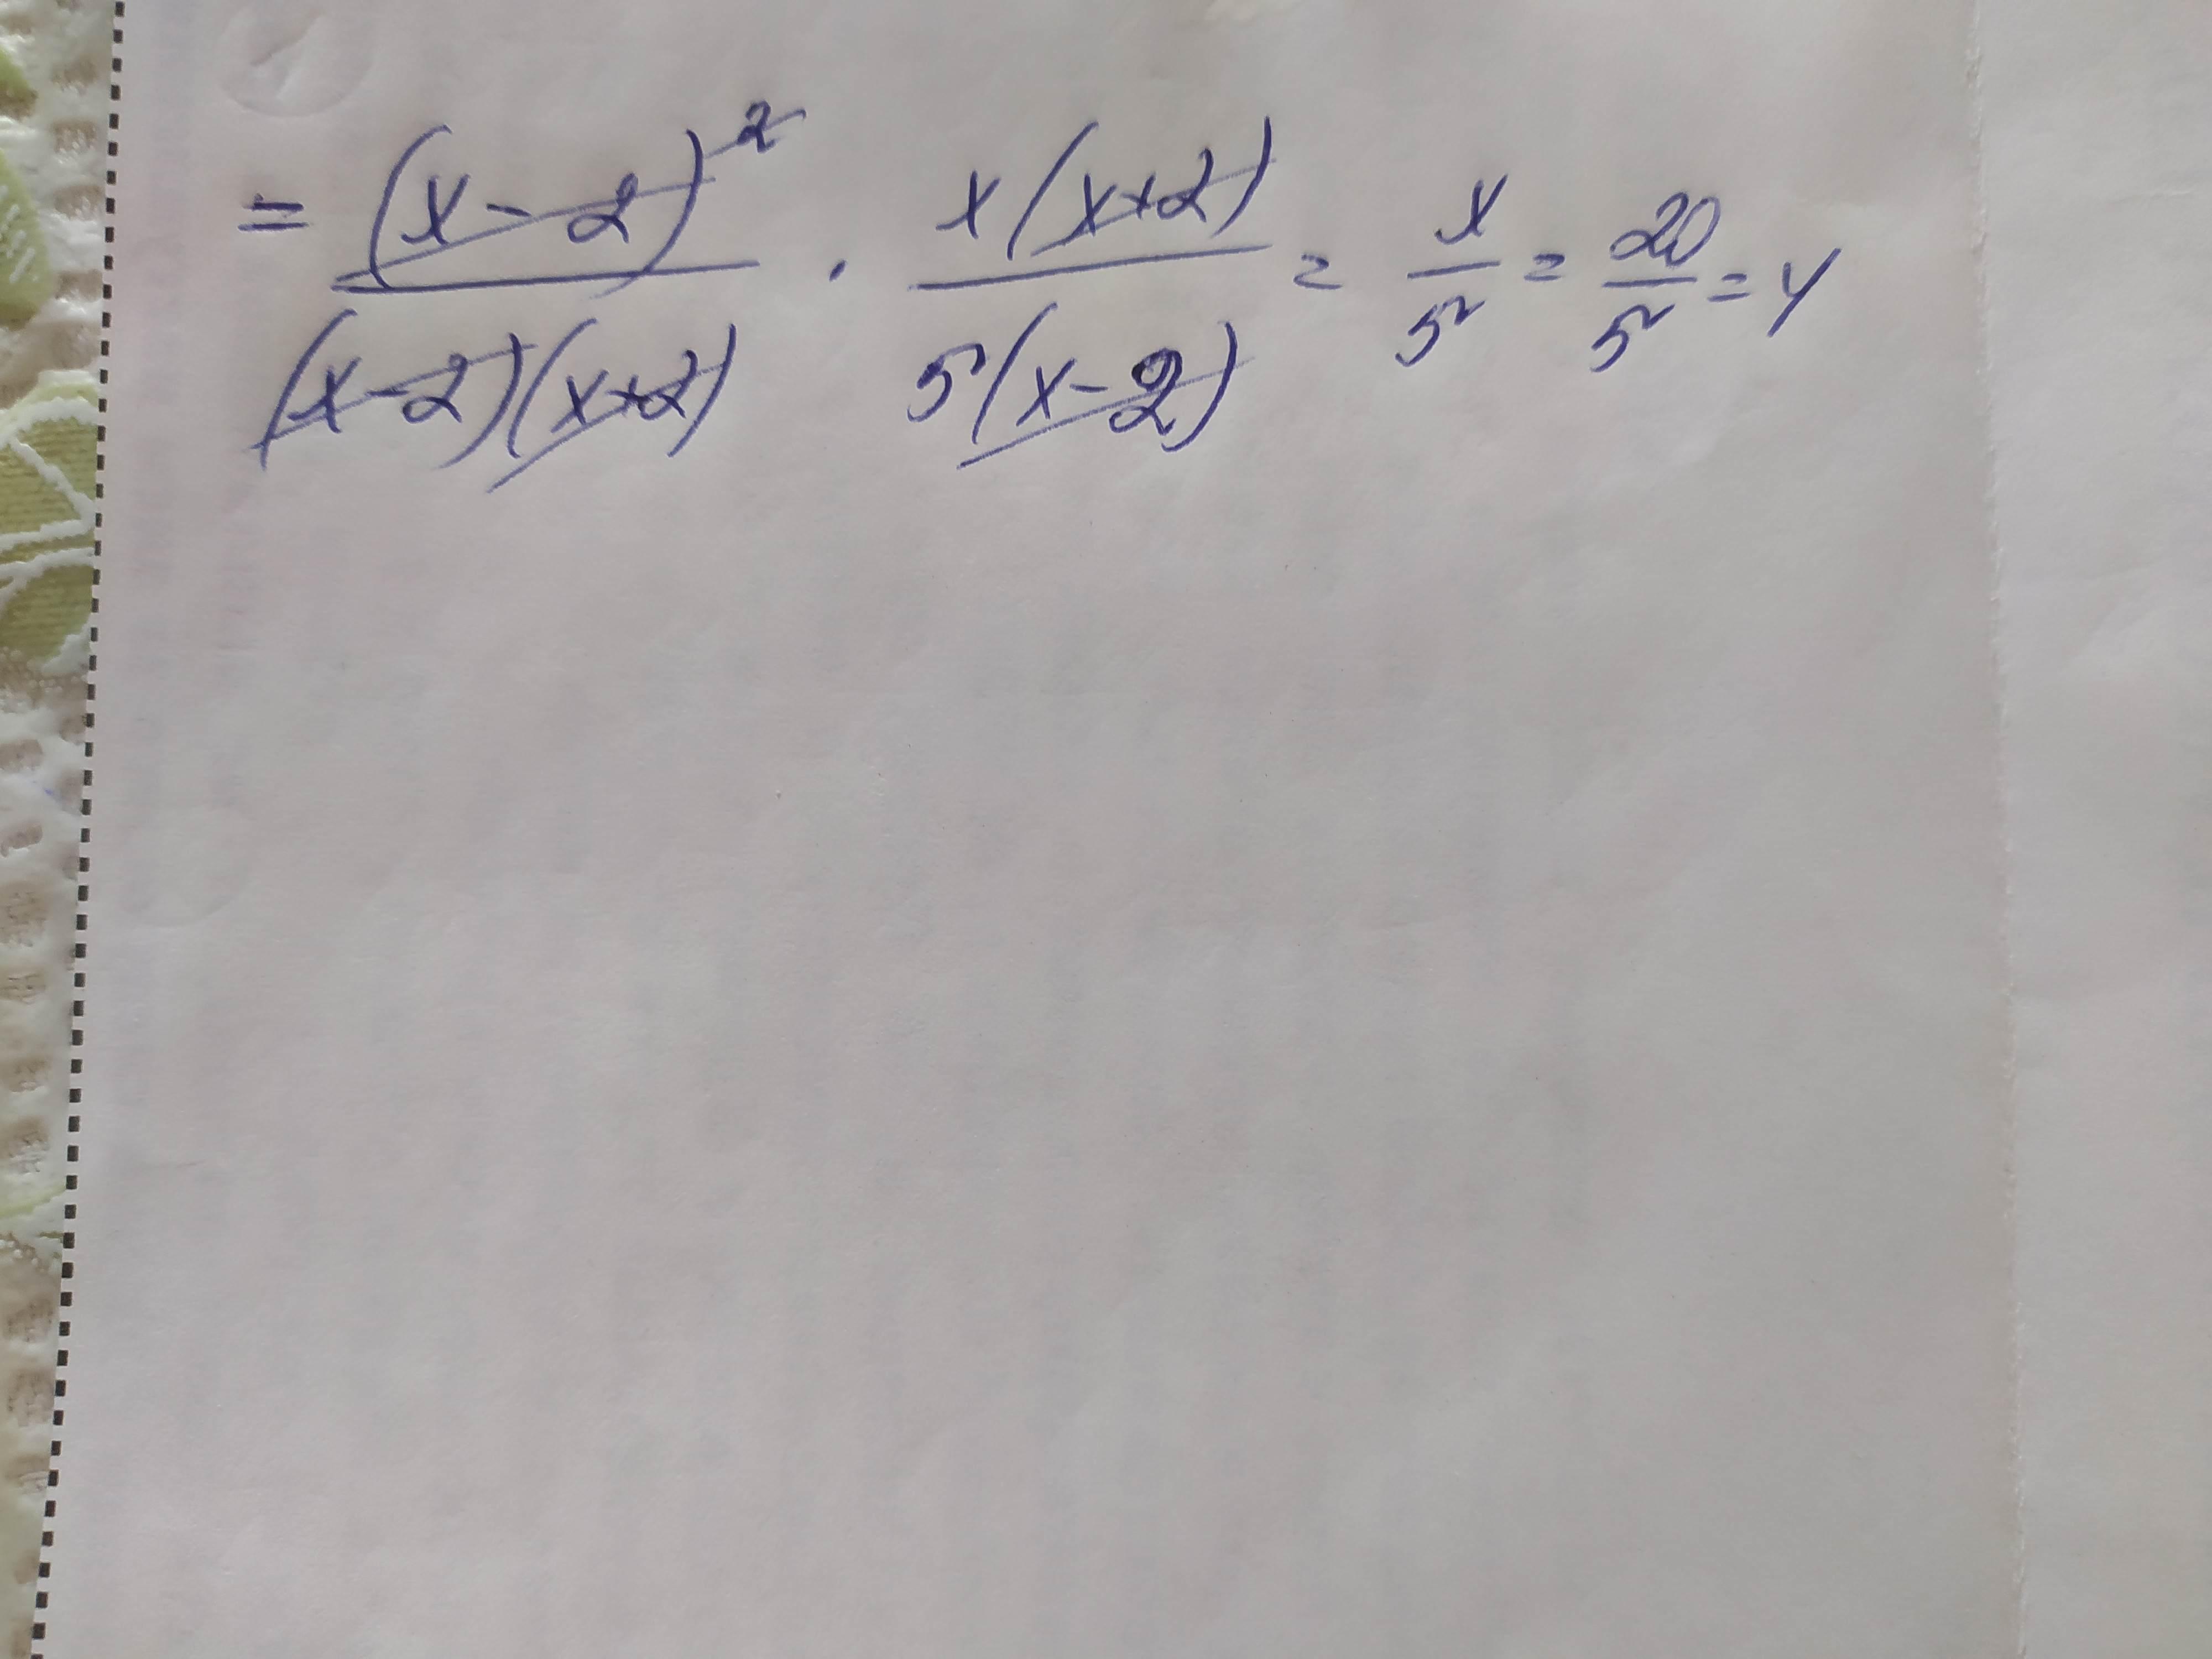 = (x-2)² / (x-2)(x+2) · x(x+2) / 5(x-2) = x/5 = 20/5 = 4